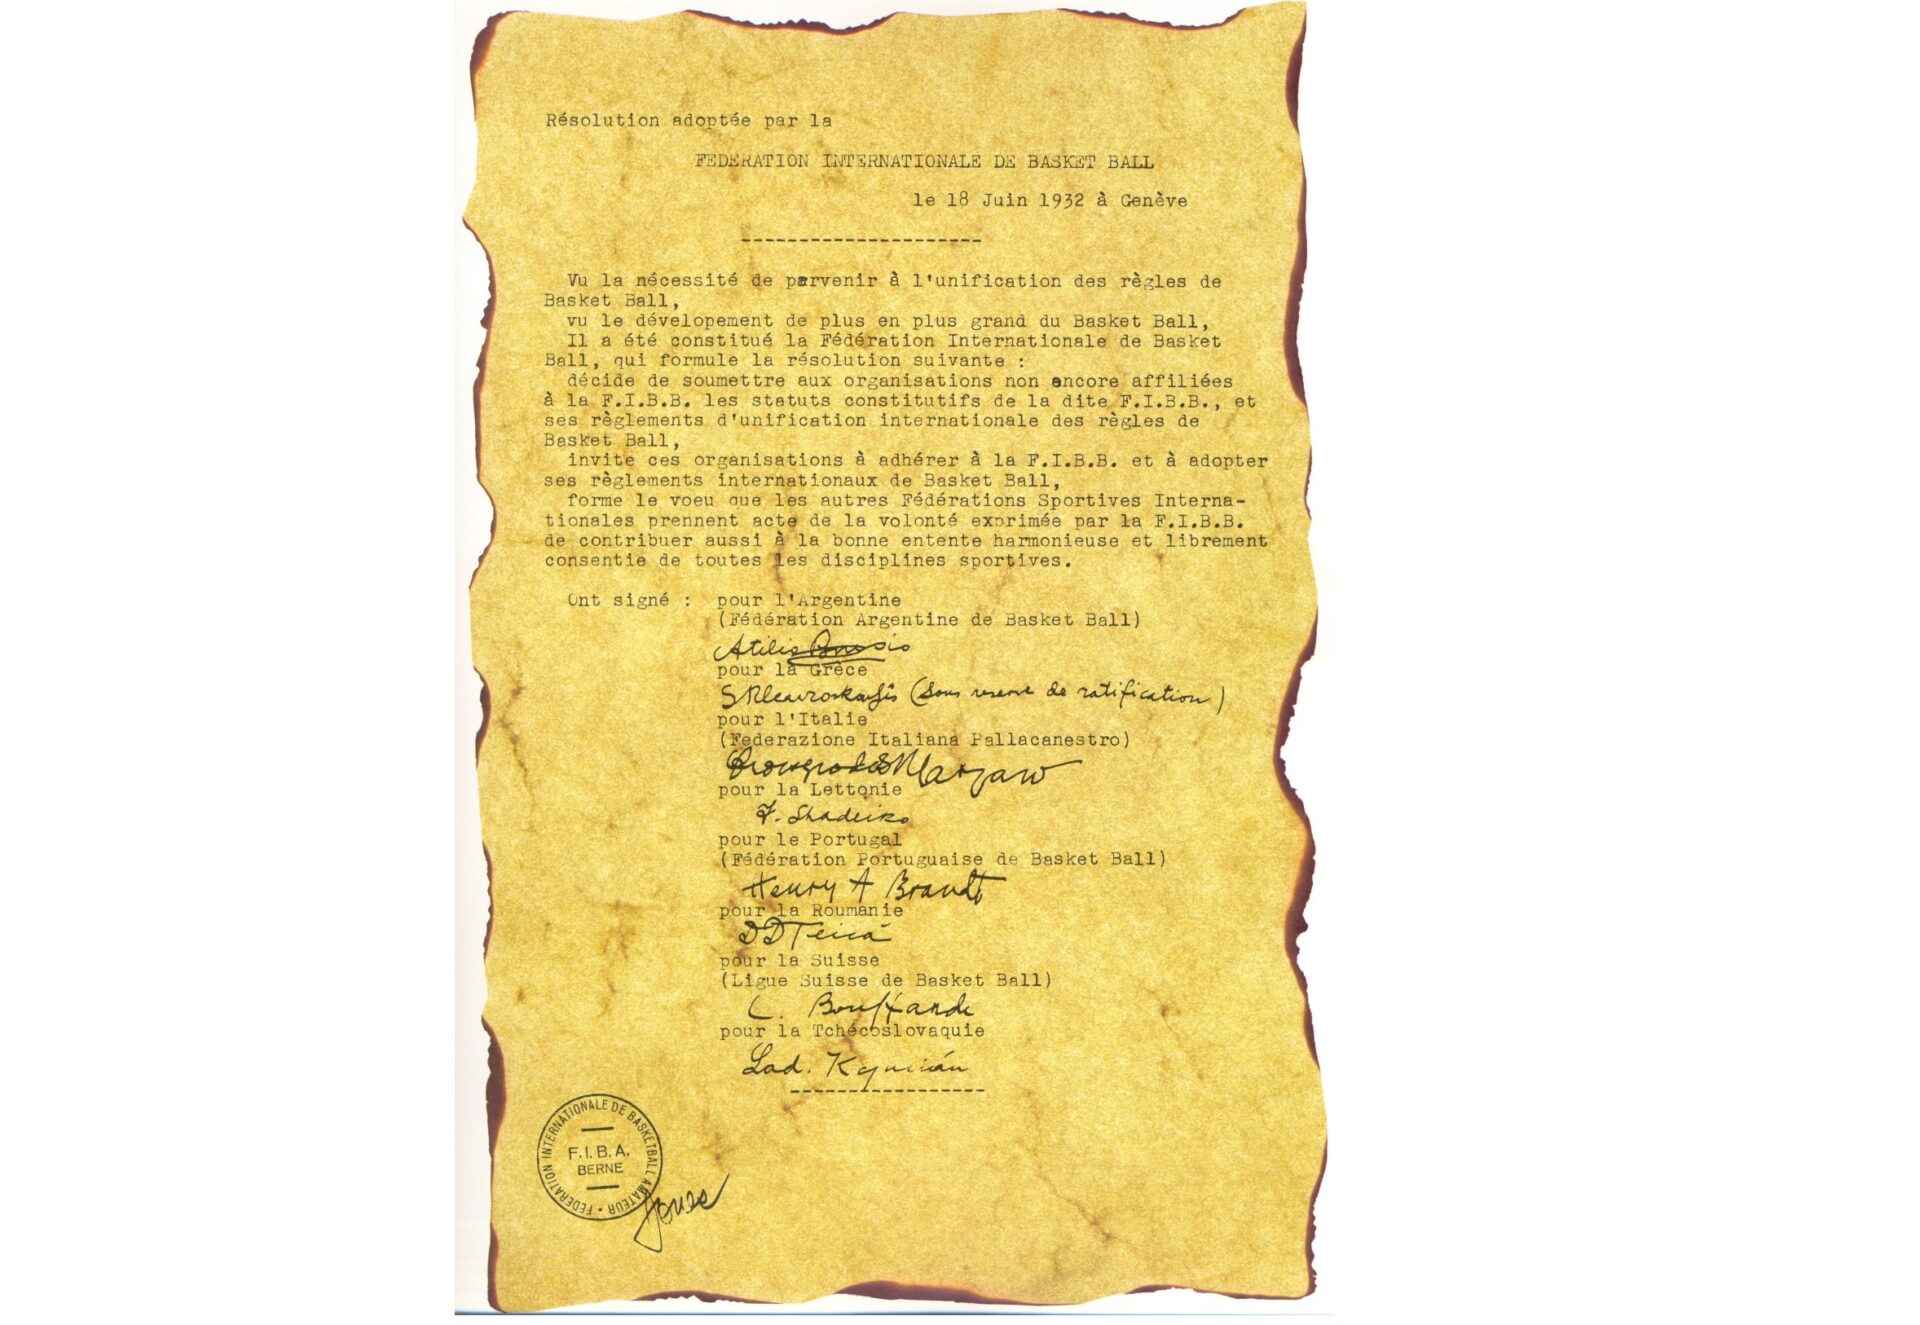 Résolution adoptée par la
FEDERATION INTERNATIONALE DE BASKET BALL
le 18 Juin 1932 à Genève
---------------------
Vu la nécessité de parvenir à l'unification des règles de
Basket Ball,
vu le dévelopement de plus en plus grand du Basket Ball,
Il a été constitué la Fédération Internationale de Basket
Ball, qui formule la résolution suivante :
décide de soumettre aux organisations non encore affiliées
à la F.I.B.B. les statuts constitutifs de la dite F.I.B.B., et
ses règlements d'unification internationale des règles de
Basket Ball,
invite ces organisations à adhérer à la F.I.B.B. et à adopter
ses règlements internationaux de Basket Ball,
forme le voeu que les autres Fédérations Sportives Interna-
tionales prennent acte de la volonté exprimée par la F.I.B.B.
de contribuer aussi à la bonne entente harmonieuse et librement
consentie de toutes les disciplines sportives.
Ont signé : pour l'Argentine
(Fédération Argentine de Basket Ball)
pour la Grèce
(sous reserve de ratification)
pour l'Italie
(Federazione Italiana Pallacanestro)
pour la Lettonie
pour le Portugal
(Fédération Portuguaise de Basket Ball)
Henry A Brandt
pour la Roumanie
pour la Suisse
(Ligue Suisse de Basket Ball)
pour la Tchécoslovaquie
Lad.
-----------------
FEDERATION INTERNATIONALE DE BASKETBALL AMATEUR
F.I.B.A.
BERNE
Jones